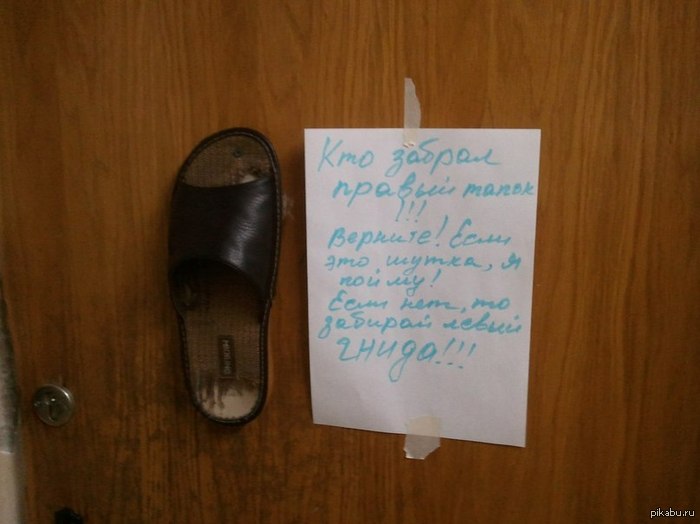 Кто забрал
правый тапок
!!!
Верните! Если
это шутка, я
пойму!
Если нет, то
забирай левый
гнида!!!
pikabu.ru